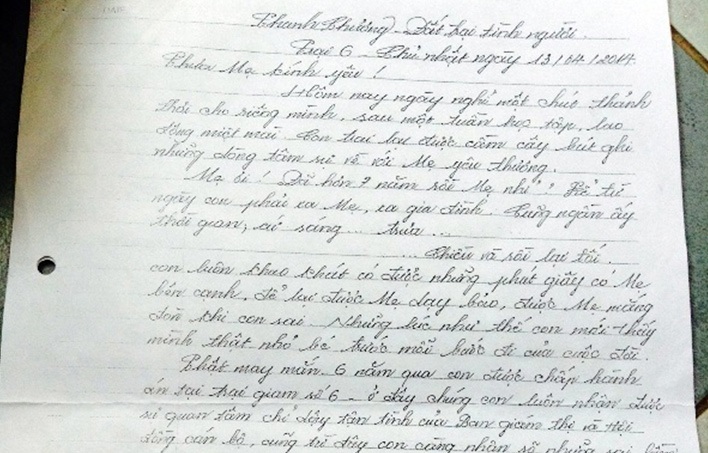 Thanh Chương - Đất trại tình người.
Trại 6 - Chủ nhật ngày 13/04/2014.
Thưa Mẹ kính yêu!
Hôm nay ngày nghỉ một chút thảnh
thơi cho riêng mình, sau một tuần học tập, lao
động miệt mài. Con trai lại được cầm cây bút ghi
những dòng tâm sự về với Mẹ yêu thương.
Mẹ ơi! Đã hơn 7 năm rồi Mẹ nhỉ? Kể từ
ngày con phải xa Mẹ, xa gia đình. Cũng ngần ấy
thời gian, cứ sáng... trưa...
... Chiều và rồi lại tối.
con luôn khao khát có được những phút giây có Mẹ
bên cạnh, để lại được Mẹ dạy bảo, được Mẹ mắng
đòn khi con sai. Những lúc như thế con mới thấy
mình thật nhỏ bé trước mỗi bước đi của cuộc đời.
Thật may mắn. 6 năm qua con được chấp hành
án tại trại giam số 6 - ở đây chúng con luôn nhận được
sự quan tâm chỉ dậy tận tình của Ban giám thị và Hội
đồng cán bộ, cũng từ đây con càng nhận rõ những sai